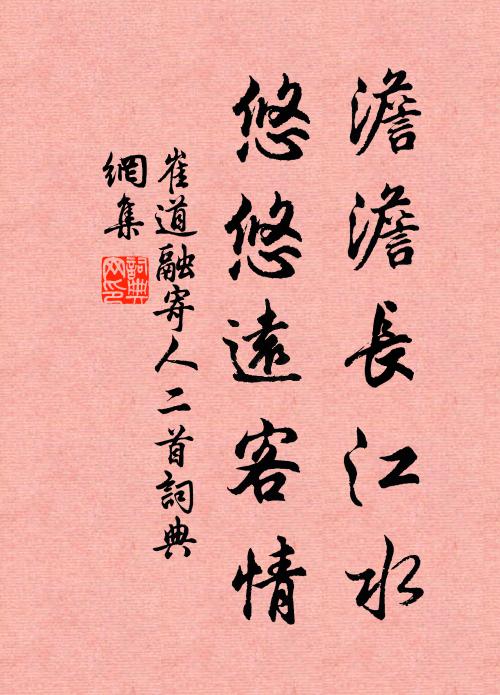 澹澹長江水
悠悠遠客情
崔道融寄人二首詞典
網集
詞典
网印